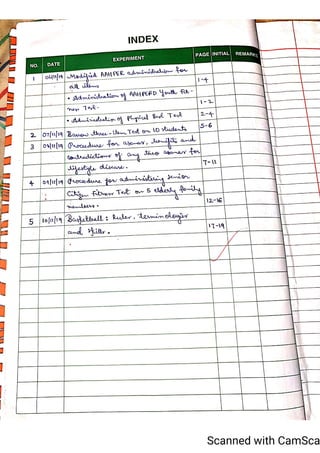 INDEX
NO. DATE EXPERIMENT PAGE INITIAL REMARKS
1 06/11/19 Modified AAHPER administration for
all items 1-4
• Administration of AAHPERD Youth Fit-
ness Test. 1-2
• Administration of Physical Best Test 2-4
2 07/11/19 Barrow three-item Test on 10 students 5-6
3 08/11/19 Procedure for asanas, benefits and
contradictions of any two asanas for
lifestyle disease. 7-11
4 09/11/19 Procedure for administering senior
Citizen Fitness Test on 5 elderly family
members. 12-16
5 10/11/19 Basketball: Rules, Terminologies
and Skills. 17-19
Scanned with CamSca